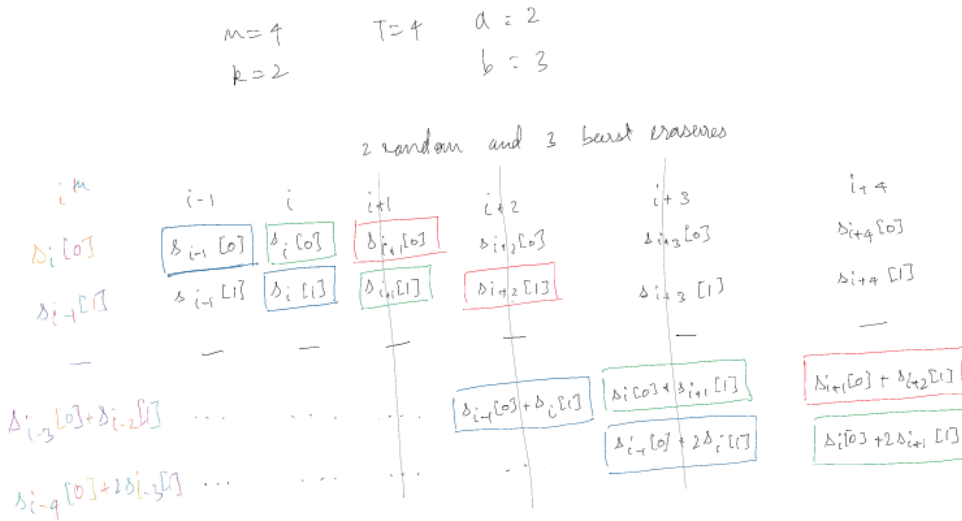 n=4 T=4 a=2
k=2 b=3
2 random and 3 burst erasures
i^th i-1 i i+1 i+2 i+3 i+4
s_i[0] s_{i-1}[0] s_i[0] s_{i+1}[0] s_{i+2}[0] s_{i+3}[0] s_{i+4}[0]
s_{i-1}[1] s_{i-1}[1] s_i[1] s_{i+1}[1] s_{i+2}[1] s_{i+3}[1] s_{i+4}[1]
— — — — — — —
s_{i-3}[0]+s_{i-2}[1] ... ... ... s_{i-1}[0]+s_i[1] s_i[0]+s_{i+1}[1] s_{i+1}[0]+s_{i+2}[1]
s_{i-4}[0]+2s_{i-3}[1] ... ... ... ... s_{i-1}[0]+2s_i[1] s_i[0]+2s_{i+1}[1]